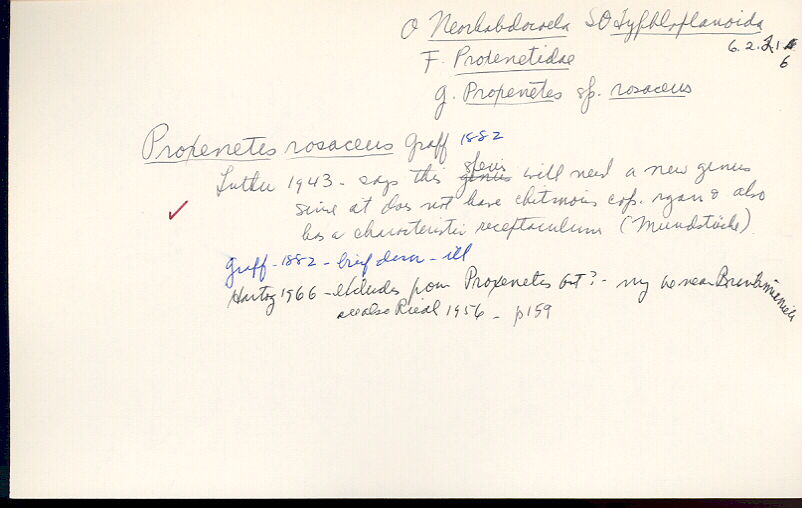 O Neorhabdocoela SO Typhloplanoida
6.2.2.1
6
F. Proxenetidae
g. Proxenetes sp. rosaceus
Proxenetes rosaceus Graff 1882
Luther 1943 - says this genus species will need a new genus
since it does not have chitinous cop. organ & also
has a characteristic receptaculum (Mundstücke)
Graff - 1882 - brief descr - ill
Hartog 1966 - excludes from Proxenetes but? - my be near
see also Riedl 1956 - p159